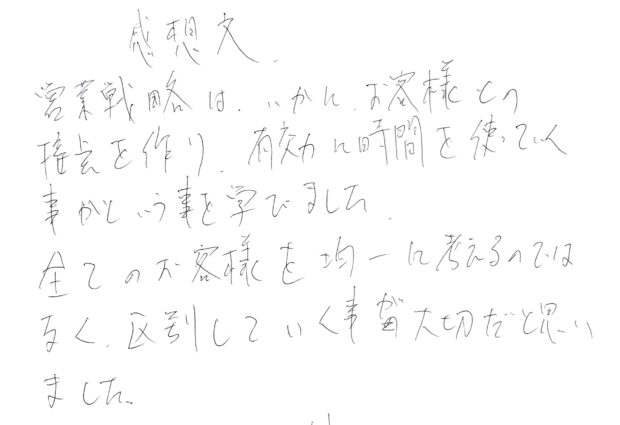 感想文.
営業戦略は、いかに、お客様との
接点を作り、有効に時間を使っていく
事かという事を学びました.
全てのお客様を均一に考えるのでは
なく、区別していく事が大切だと思い
ました。